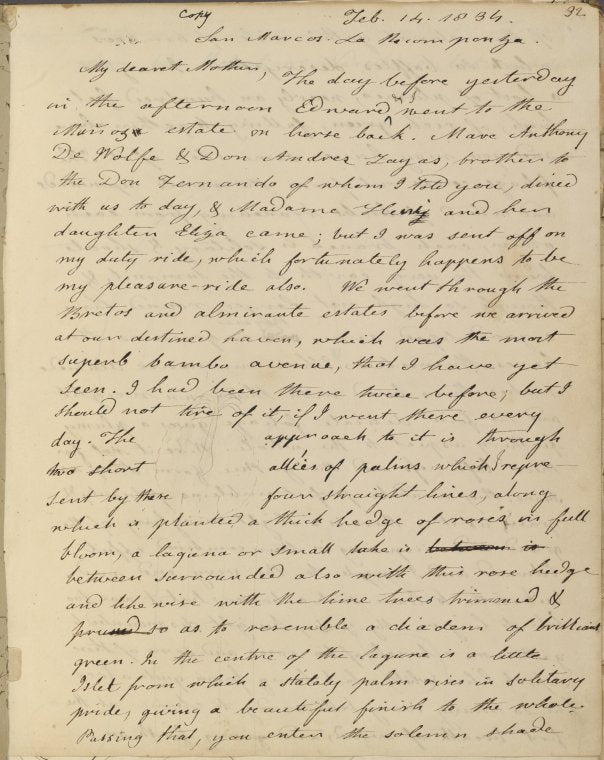 copy Feb. 14. 1834. 92
San Marcos. La Recompenza.
My dearest Mother, The day before yesterday
in the afternoon Edward & I went to the
estate on horse back. Marc Anthony
De Wolfe & Don Andres Zayas, brother to
the Don Fernando of whom I told you, dined
with us to day, & Madame and her
daughter Eliza came; but I was sent off on
my duty ride, which fortunately happens to be
my pleasure-ride also. We went through the
Bretos and almirante estates before we arrived
at our destined haven, which was the most
superb bambo avenue, that I have yet
seen. I had been there twice before; but I
should not tire of it, if I went there every
day. The approach to it is through
two short allées of palms which I repre-
sent by these four straight lines, along
which is planted a thick hedge of roses in full
bloom, a laguna or small lake is between is
between surrounded also with this rose hedge
and likewise with the lime trees trimmed &
pruned so as to resemble a diadem of brilliant
green. In the centre of the lagune is a little
Islet from which a stately palm rises in solitary
pride, giving a beautiful finish to the whole.
Passing that, you enter the solemn shade